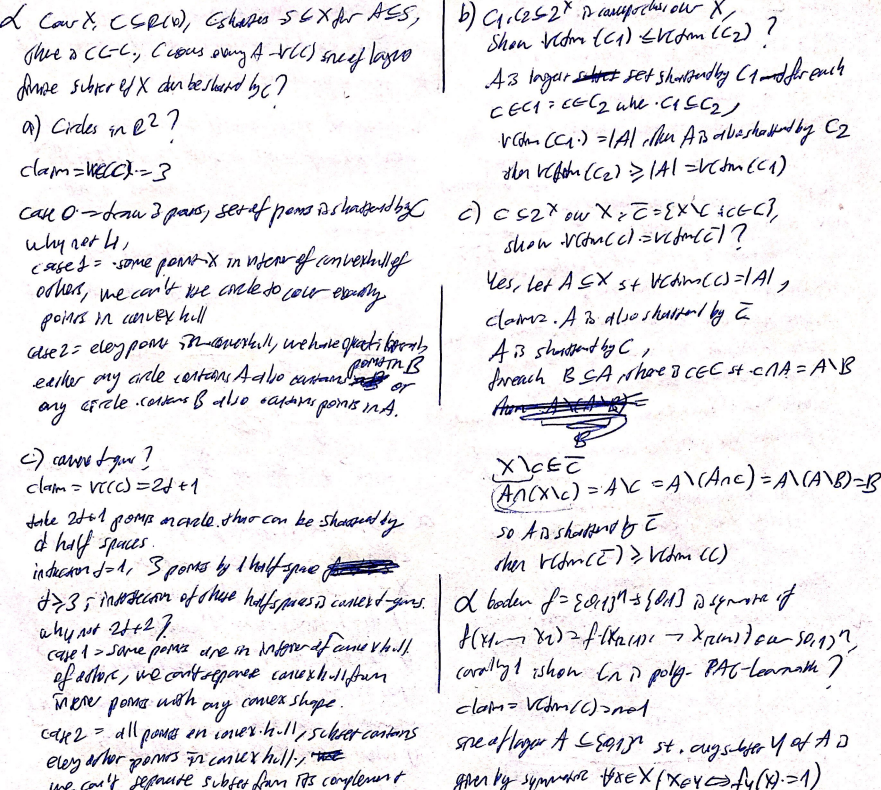 α Cour X, C ⊆ P(X), C shatters S ⊆ X for A ⊆ S,
there is c ∈ C, C covers every A - VC(C) size of largest
finite subset of X can be shattered by C?
a) Circles in R² ?
claim = VC(C) = 3
case 0 → draw 3 points, set of points is shattered by C
why not 4,
case 1 = some point x in interior of convex hull of
others, we can't use circle to cover exactly
points in convex hull
case 2 = every point in convex hull, we have
either any circle contains A also contains points in B or
any circle contains B also contains points in A.
c) convex d-gons ?
claim = VC(C) = 2d+1
take 2d+1 points on circle that can be shattered by
d half spaces.
induction d=1, 3 points by 1 half-space
d ≥ 3 ; intersection of these halfspaces is convex d-gons.
why not 2d+2 ?
case 1 = some points are in interior of convex hull
of others, we can't separate convex hull from
inner points with any convex shape.
case 2 = all points on convex hull, subset contains
every other points in convex hull,
we can't separate subset from its complement
b) C1, C2 ⊆ 2^X is concept class over X,
show VCdim(C1) ≤ VCdim(C2) ?
A is larger set shattered by C1 and for each
c ∈ C1 = c ∈ C2 where C1 ⊆ C2,
VCdim(C1) = |A|, then A is also shattered by C2
then VCdim(C2) ≥ |A| = VCdim(C1)
c) C ⊆ 2^X over X, C̄ = {X\C : c ∈ C},
show VCdim(C) = VCdim(C̄) ?
Yes, let A ⊆ X st VCdim(C) = |A|,
claim2. A is also shattered by C̄
A is shattered by C,
for each B ⊆ A, there is c ∈ C st c ∩ A = A\B
B
X\c ∈ C̄
A∩(X\c) = A\c = A\(A∩c) = A\(A\B) = B
so A is shattered by C̄
then VCdim(C̄) ≥ VCdim(C)
α boolean f = {0,1}^n → {0,1} is symmetric if
show Cn is poly- PAC-learnable ?
claim = VCdim(C) = n+1
size of larger A ⊆ {0,1}^n st. any subset Y of A is
given by symmetric ∀x∈X (x∈Y ⇔ fY(x) = 1)